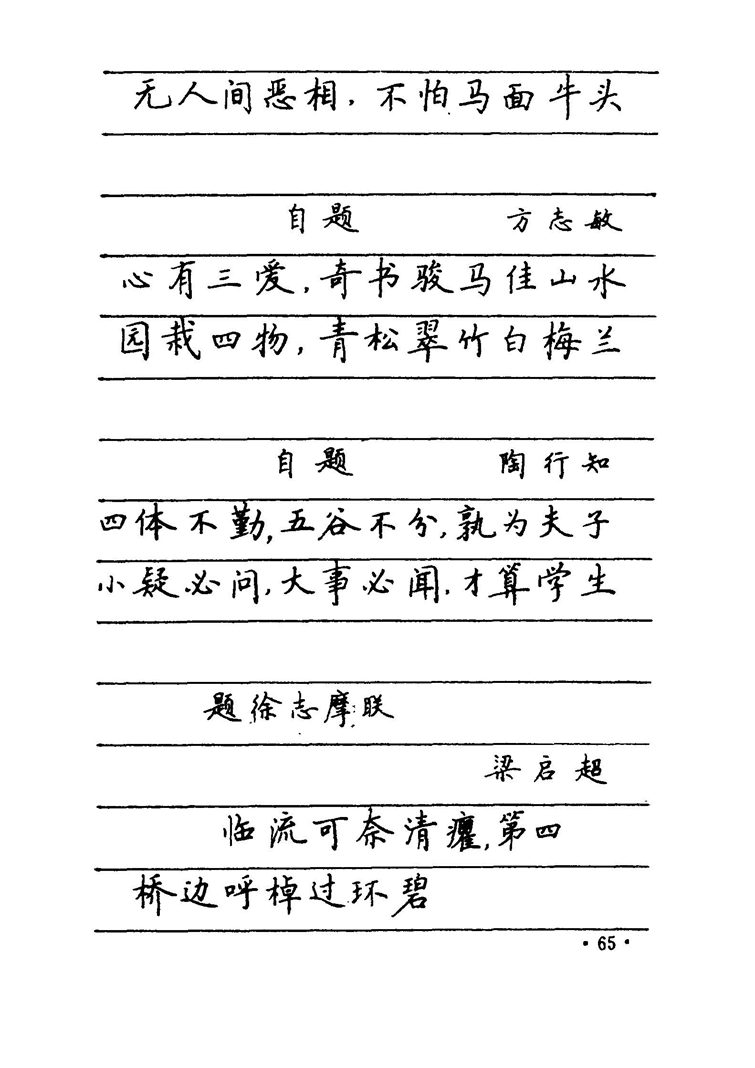 无人间恶相，不怕马面牛头
自题 方志敏
心有三爱，奇书骏马佳山水
园栽四物，青松翠竹白梅兰
自题 陶行知
四体不勤，五谷不分，孰为夫子
小疑必问，大事必闻，才算学生
题徐志摩联
梁启超
临流可奈清癯，第四
桥边呼棹过环碧
·65·